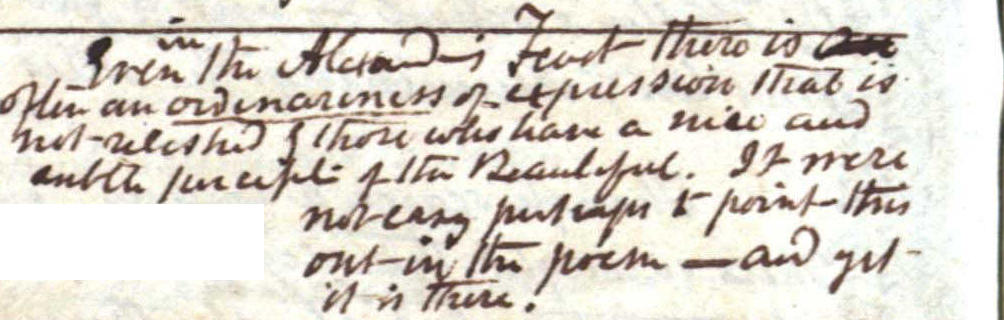 Even in the Alexand's Feast there is an
often an ordinariness of expression that is
not relished by those who have a nice and
subtle perception of the Beautiful. It were
not easy perhaps to point this
out in the poem — and yet
it is there.